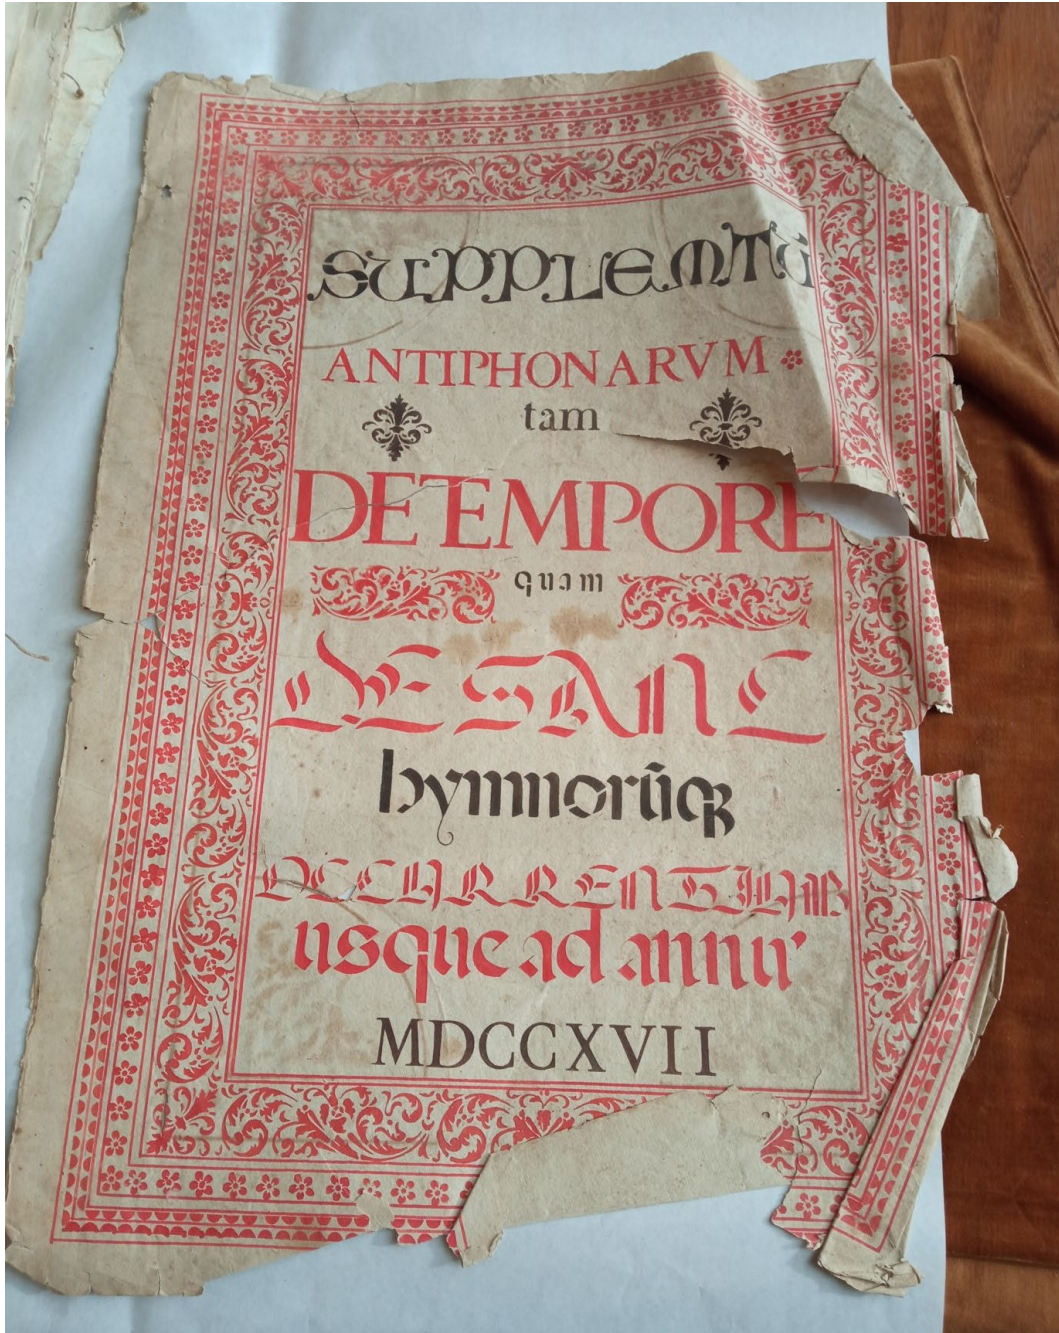 SUPPLEMTŪ
ANTIPHONARVM
tam
DE TEMPORE
quam
DE SANC
hymnorūqꝫ
OCCURRENTIUM
usque ad annū
MDCCXVII